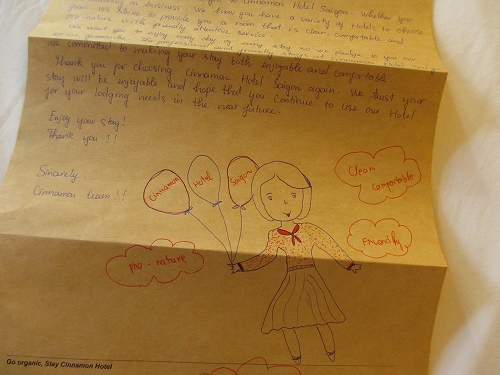 to Cinnamon Hotel Saigon, whether you
on business. We know you have a variety of Hotels to choose
from. We strive to provide you a room that is clean, comfortable and
pro-nature with friendly attentive service.
We want you to enjoy every day of your stay so we pledge to you our
as committed to making your stay both enjoyable and comfortable.
Thank you for choosing Cinnamon Hotel Saigon again. We trust your
stay will be enjoyable and hope that you continue to use our Hotel
for your lodging needs in the near future.
Enjoy your stay!
Thank you!!
Sincerely.
Cinnamon team!!
Cinnamon
Hotel
Saigon
Clean
Comfortable
Friendly
pro-nature
Go organic, Stay Cinnamon Hotel